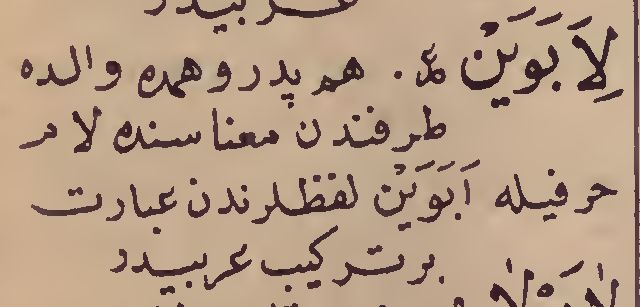 عربیدر
لِاَبَوَیْن ع. هم پدر و همده والده
طرفندن معناسنده لام
حرفیله اَبَوَیْن لفظلرندن عبارت
بر ترکیب عربیدر